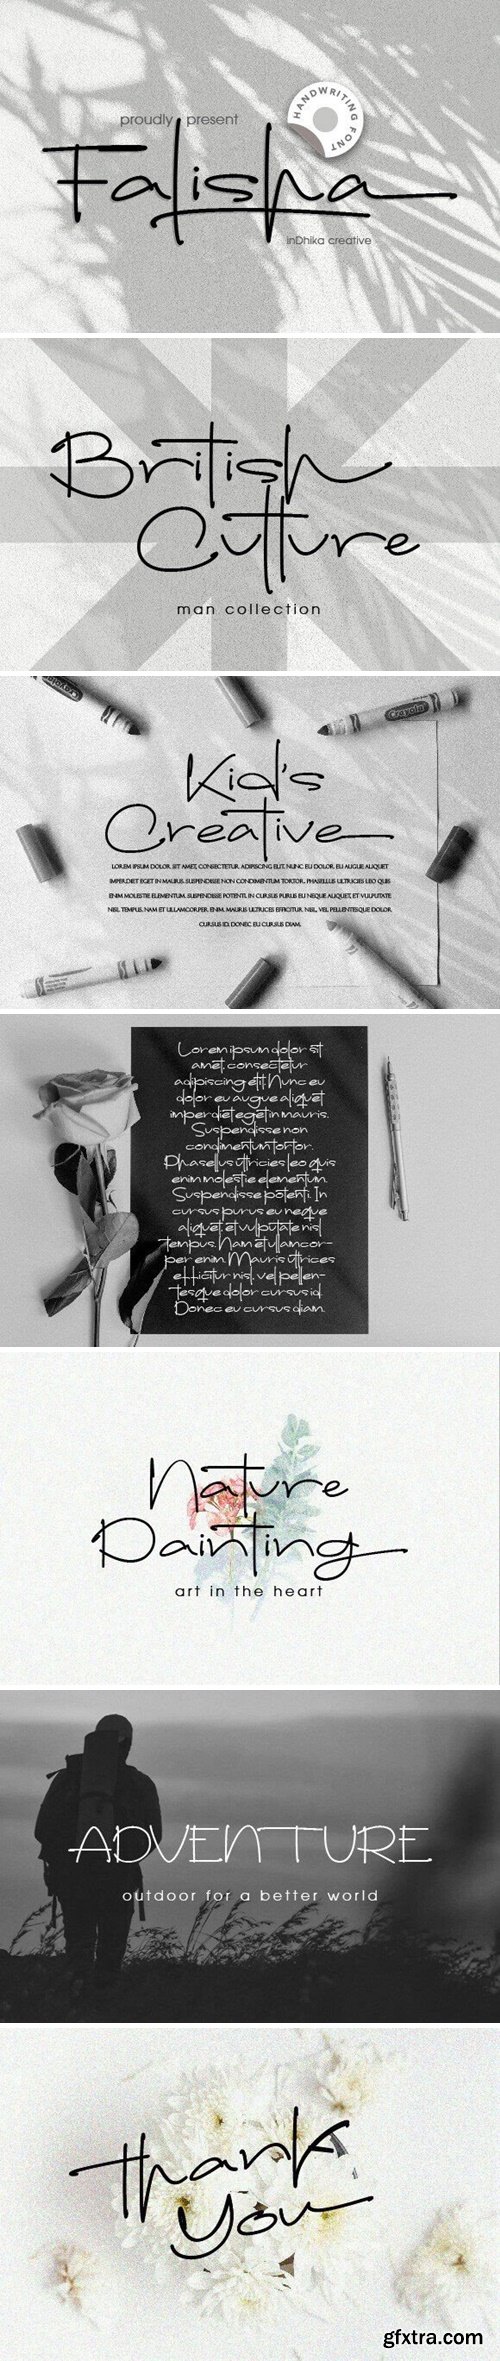 proudly present
HANDWRITING FONT
Falisha
inDhika creative
British
Culture
man collection
Crayola
Crayola
Kid's
Creative
LOREM IPSUM DOLOR SIT AMET, CONSECTETUR ADIPISCING ELIT. NUNC EU DOLOR EU AUGUE ALIQUET
IMPERDIET EGET IN MAURIS. SUSPENDISSE NON CONDIMENTUM TORTOR. PHASELLUS ULTRICIES LEO QUIS
ENIM MOLESTIE ELEMENTUM. SUSPENDISSE POTENTI. IN CURSUS PURUS EU NEQUE ALIQUET, ET VULPUTATE
NISL TEMPUS. NAM ET ULLAMCORPER ENIM. MAURIS ULTRICES EFFICITUR NISL, VEL PELLENTESQUE DOLOR
CURSUS ID. DONEC EU CURSUS DIAM.
Lorem ipsum dolor sit
amet, consectetur
adipiscing elit. Nunc eu
dolor eu augue aliquet
imperdiet eget in mauris.
Suspendisse non
condimentum tortor.
Phasellus ultricies leo quis
enim molestie elementum.
Suspendisse potenti. In
cursus purus eu neque
aliquet, et vulputate nisl
tempus. Nam et ullamcor-
per enim. Mauris ultrices
efficitur nisl, vel pellen-
tesque dolor cursus id.
Donec eu cursus diam.
Nature
Painting
art in the heart
ADVENTURE
outdoor for a better world
thank
you
gfxtra.com